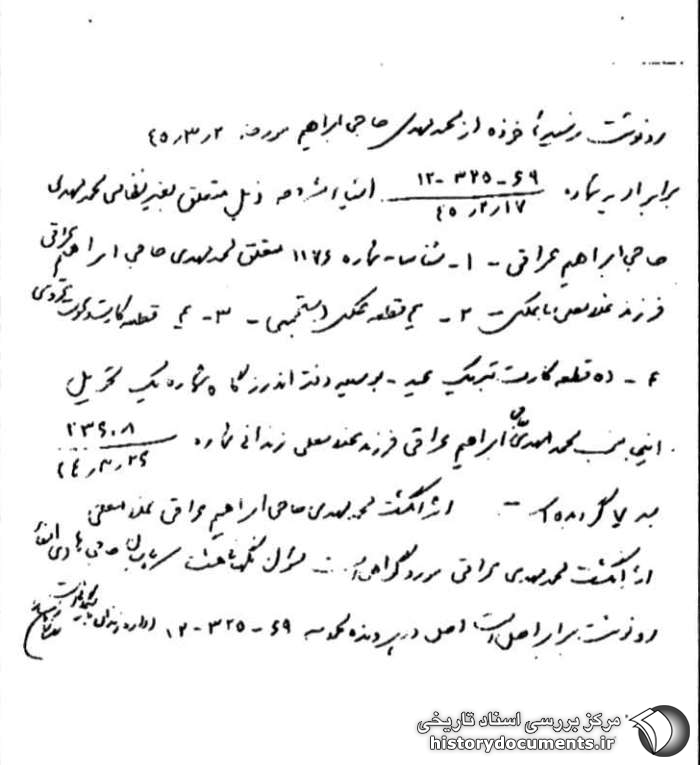 رونوشت رسید مأخوذه از محمدمهدی حاجی ابراهیم مورخه ۴۵٫۳٫۲
برابر اوامریه شماره ۱۲-۳۲۵-۶۹ / ۴۵٫۲٫۱۷ اشیاء مشروحه ذیل متعلق بغیرنظامی محمدمهدی
حاجی ابراهیم عراقی - ۱- شناسنامه شماره ۱۱۷۶ متعلق محمدمهدی حاجی ابراهیم عراقی
فرزند غلامعلی با عکس - ۲- قطعه عکس - ۳- قطعه کارت
۴- ده قطعه کارت تبریک عید - بوسیله دفتر اندرزگاه شماره یک تحویل
اینجانب محمدمهدی حاجی ابراهیم عراقی فرزند غلامعلی زندانی شماره ۲۳۶۰۸ / ۴۴٫۳٫۲۶
گردید - اثر انگشت محمدمهدی حاجی ابراهیم عراقی غلامعلی
اثر انگشت محمدمهدی عراقی مورد گواهی است مسئول نگهداشت
رونوشت برابر اصل است اصل در پرونده ۱۲-۳۲۵-۶۹ اداره زندان
مرکز بررسی اسناد تاریخی
historydocuments.ir